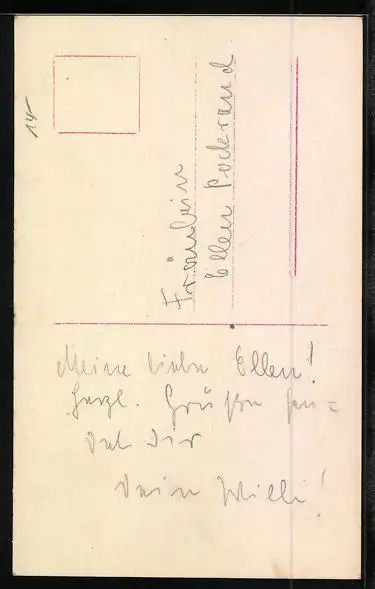 14-
Fräulein
Ellen Pockrand
Meine liebe Ellen!
Herzl. Grüße sen=
det Dir
Dein Willi!